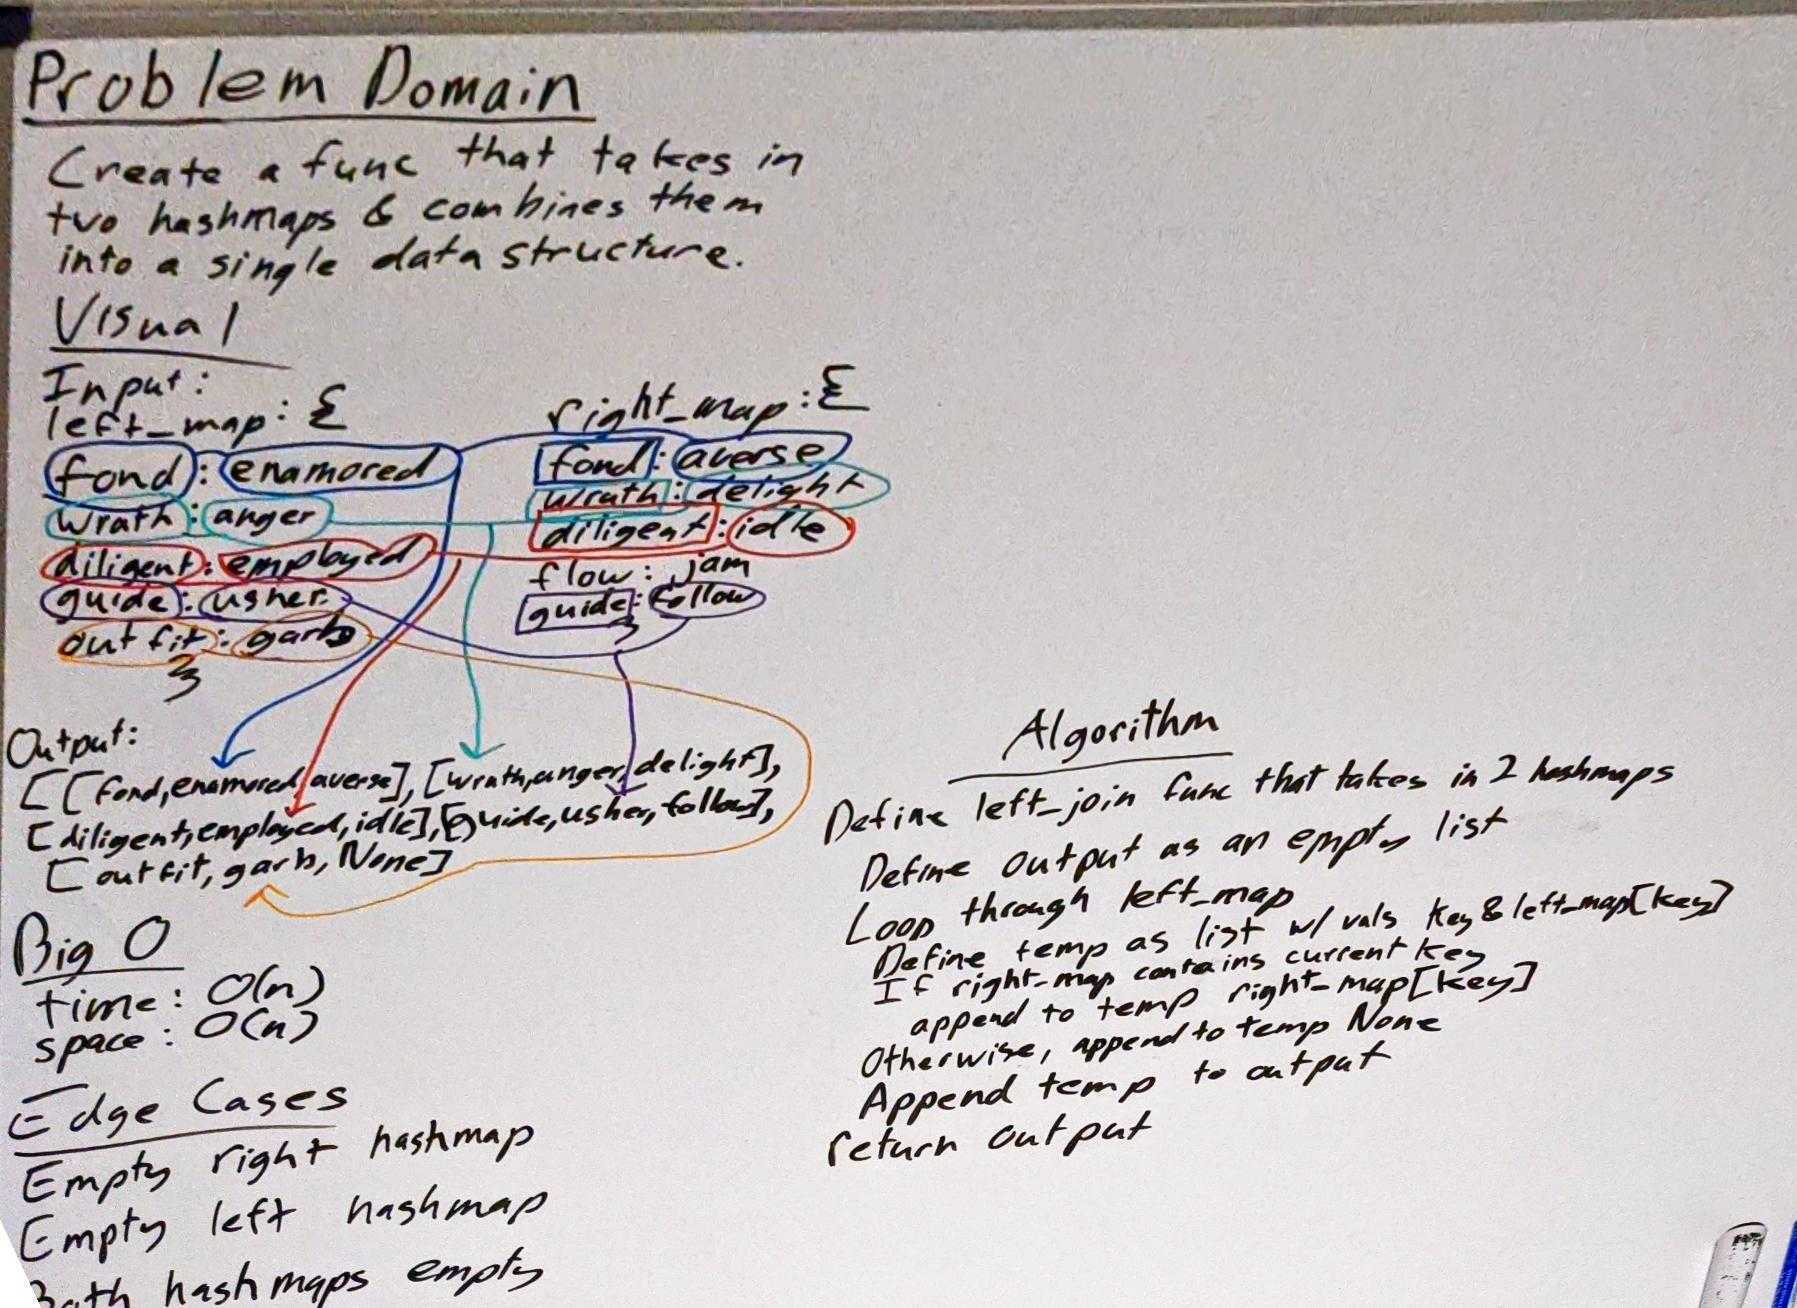 Problem Domain
Create a func that takes in
two hashmaps & combines them
into a single data structure.
Visual
Input:
left_map: {
fond: enamored
wrath: anger
diligent: employed
guide: usher
outfit: garb
}
right_map: {
fond: averse
wrath: delight
diligent: idle
flow: jam
guide: follow
}
Output:
[[fond, enamored, averse], [wrath, anger, delight],
[diligent, employed, idle], [guide, usher, follow],
[outfit, garb, None]
Big O
time: O(n)
space: O(n)
Edge Cases
Empty right hashmap
Empty left hashmap
Both hashmaps empty
Algorithm
Define left_join func that takes in 2 hashmaps
Define output as an empty list
Loop through left_map
Define temp as list w/ vals key & left_map[key]
If right_map contains current key
append to temp right_map[key]
Otherwise, append to temp None
Append temp to output
return output